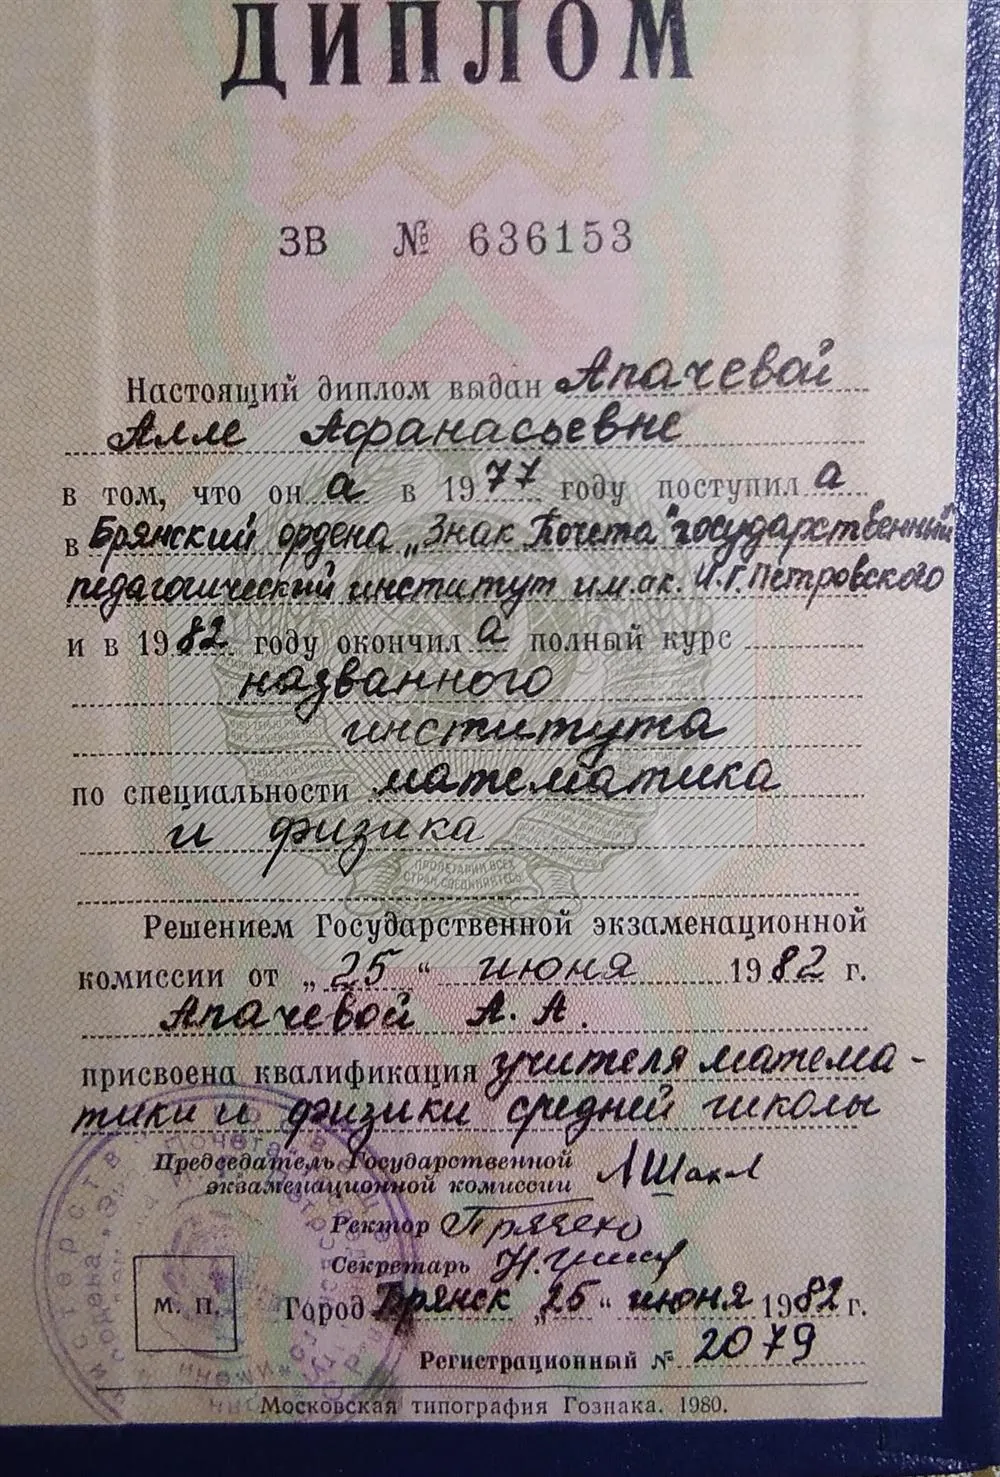 ДИПЛОМ
ЗВ № 636153
Настоящий диплом выдан Апачевой
Алле Афанасьевне
в том, что он а в 1977 году поступил а
в Брянский ордена „Знак Почета" государственный
педагогический институт им. ак. И.Г. Петровского
и в 1982 году окончил а полный курс
названного
института
по специальности математика
и физика
ПРОЛЕТАРИИ ВСЕХ
СТРАН, СОЕДИНЯЙТЕСЬ!
Решением Государственной экзаменационной
комиссии от „25“ июня 1982 г.
Апачевой А. А.
присвоена квалификация учителя матема-
тики и физики средней школы
Председатель Государственной
экзаменационной комиссии
Ректор
Секретарь
М. П. Город Брянск „25“ июня 1982 г.
Регистрационный № 2079
Московская типография Гознака. 1980.